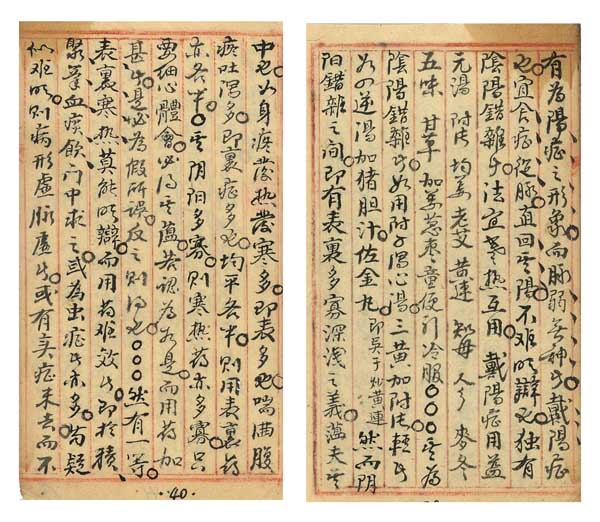 有为陽症之形象而脉弱無神者戴陽症
也宜舍症從脉直回其陽不難明辯也独有
陰陽錯雜者法宜寒热互用戴陽症用益
元湯 附片 均姜 老艾 黄連 知母 人参 麦冬
五味 甘草 加姜葱枣童便引冷服〇〇〇其为
陰陽錯雜者如用附子瀉心湯三黄加附片輕者
如四逆湯加猪胆汁佐金丸 即吴于炒黄連 然而阴
阳錯雜之间即有表裏多寡深浅之義蕴夫其
中也以身疼發热發寒多即表多也喘满腹
痞吐瀉多即裏症多也均平各半则用表裏药
亦各半其阴阳多寡则寒热药亦多寡只
要细心體會必得其蕴若認為是而用药加
甚者是必為假所误反之则得也〇〇〇然有一等
表裏寒热莫能明辯而用药难效者即於積
聚血痰飲门中求之或為虫症者亦多苟疑
似难明则病形虚脉虚者或有实症未去而不
·40·